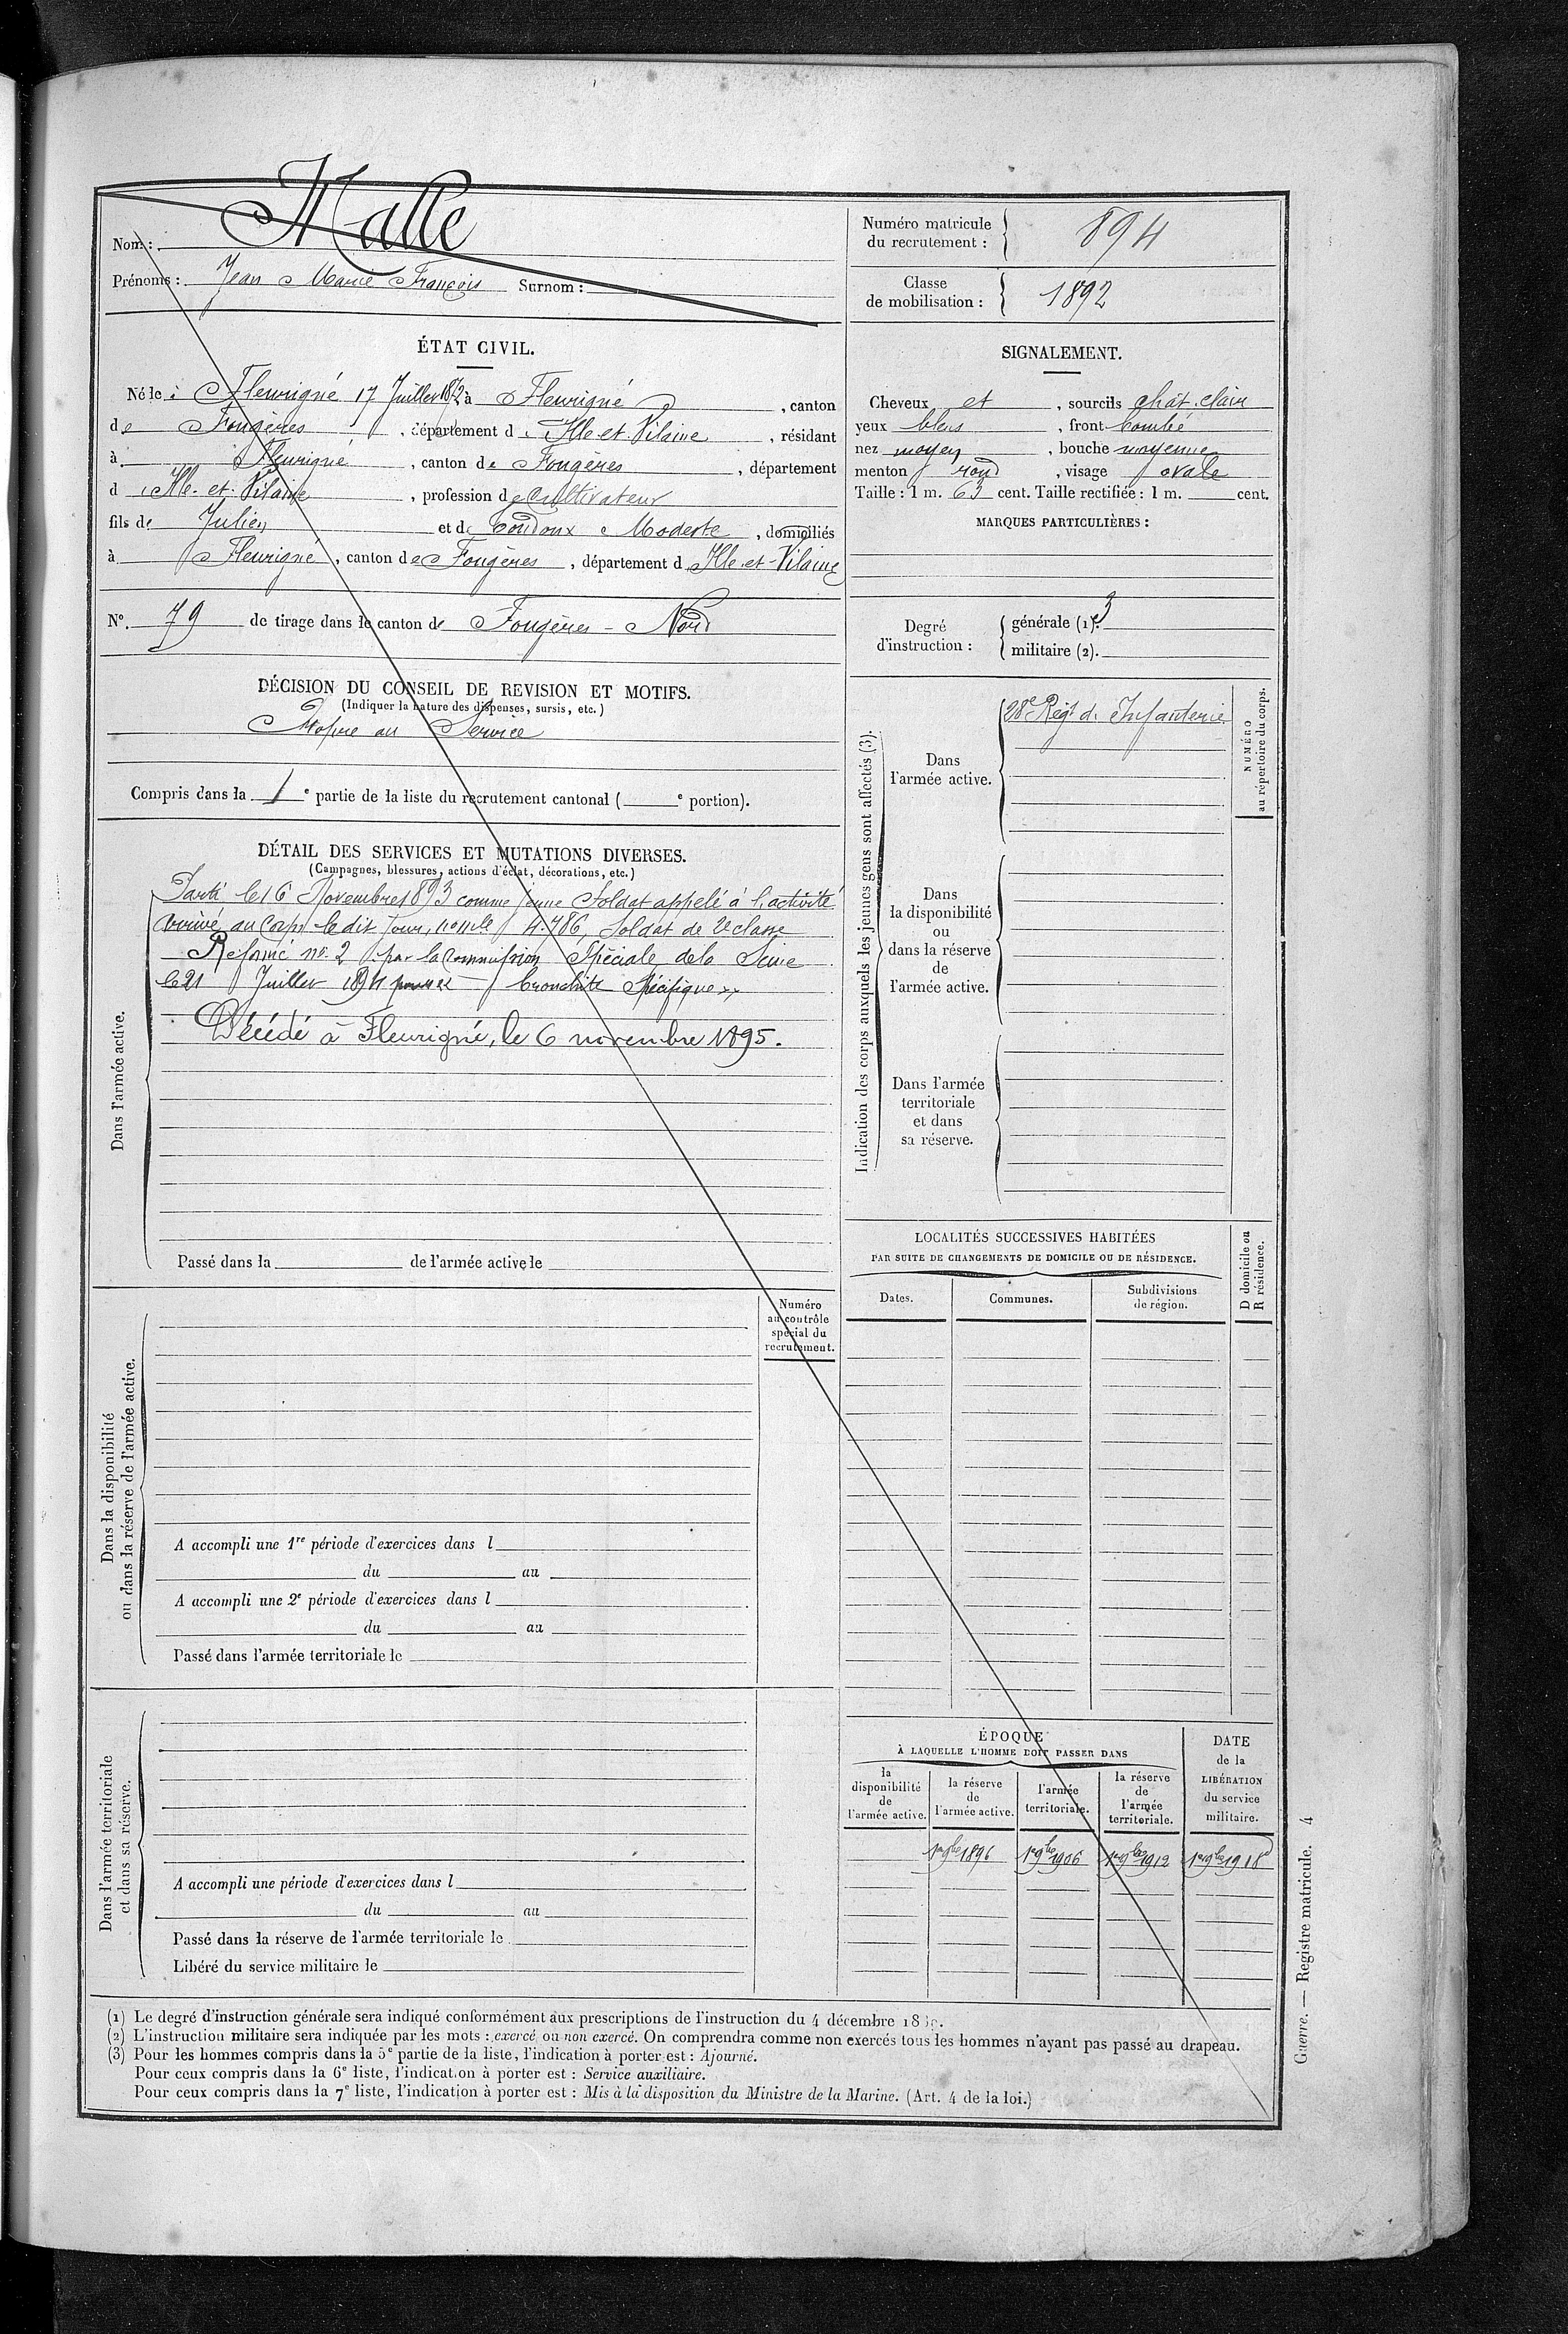 Nom : Malle
Prénoms : Jean Marie François Surnom :
Numéro matricule
du recrutement : 894
Classe
de mobilisation : 1892
ÉTAT CIVIL.
Né le à Fleurigné 17 Juillet 1872 à Fleurigné , canton
de Fougères , département d Ille et Vilaine , résidant
à Fleurigné , canton de Fougères , département
d Ille et Vilaine , profession de Cultivateur
fils de Julien et de Coudoux Modeste , domiciliés
à Fleurigné , canton de Fougères , département d Ille et Vilaine
N°. 79 de tirage dans le canton de Fougères - Nord
DÉCISION DU CONSEIL DE REVISION ET MOTIFS.
(Indiquer la nature des dispenses, sursis, etc.)
Propre au Service
Compris dans la 1 e partie de la liste du recrutement cantonal ( e portion).
SIGNALEMENT.
Cheveux et , sourcils chât. clair
yeux bleus , front bombé
nez moyen , bouche moyenne
menton rond , visage ovale
Taille : 1 m. 63 cent. Taille rectifiée : 1 m. cent.
MARQUES PARTICULIÈRES :
Degré
d'instruction :
générale (1). 3
militaire (2).
DÉTAIL DES SERVICES ET MUTATIONS DIVERSES.
(Campagnes, blessures, actions d'éclat, décorations, etc.)
Dans l'armée active.
Parti le 16 Novembre 1893 comme jeune Soldat appelé à l'activité
arrivé au Corps le dit Jour, n° mle 4.786, Soldat de 2e classe
Réformé n° 2 par la Commission Spéciale de la Seine
le 21 Juillet 1894 pour bronchite Spécifique
Décédé à Fleurigné, le 6 novembre 1895.
Passé dans la de l'armée active le
Indication des corps auxquels les jeunes gens sont affectés (3).
Dans
l'armée active.
28e Régt d. Infanterie
NUMÉRO
au répertoire du corps.
Dans
la disponibilité
ou
dans la réserve
de
l'armée active.
Dans l'armée
territoriale
et dans
sa réserve.
LOCALITÉS SUCCESSIVES HABITÉES
PAR SUITE DE CHANGEMENTS DE DOMICILE OU DE RÉSIDENCE.
Dates.
Communes.
Subdivisions
de région.
D domicile ou
R résidence.
Dans la disponibilité
ou dans la réserve de l'armée active.
Numéro
au contrôle
spécial du
recrutement.
A accompli une 1re période d'exercices dans l
du au
A accompli une 2e période d'exercices dans l
du au
Passé dans l'armée territoriale le
Dans l'armée territoriale
et dans sa réserve.
A accompli une période d'exercices dans l
du au
Passé dans la réserve de l'armée territoriale le
Libéré du service militaire le
ÉPOQUE
À LAQUELLE L'HOMME DOIT PASSER DANS
la
disponibilité
de
l'armée active.
la réserve
de
l'armée active.
l'armée
territoriale.
la réserve
de
l'armée
territoriale.
DATE
de la
LIBÉRATION
du service
militaire.
1er 9bre 1896 1er 9bre 1906 1er 9bre 1912 1er 9bre 1918
(1) Le degré d'instruction générale sera indiqué conformément aux prescriptions de l'instruction du 4 décembre
(2) L'instruction militaire sera indiquée par les mots : exercé ou non exercé. On comprendra comme non exercés tous les hommes n'ayant pas passé au drapeau.
(3) Pour les hommes compris dans la 5e partie de la liste, l'indication à porter est : Ajourné.
Pour ceux compris dans la 6e liste, l'indication à porter est : Service auxiliaire.
Pour ceux compris dans la 7e liste, l'indication à porter est : Mis à la disposition du Ministre de la Marine. (Art. 4 de la loi.)
Guerre. — Registre matricule. 4